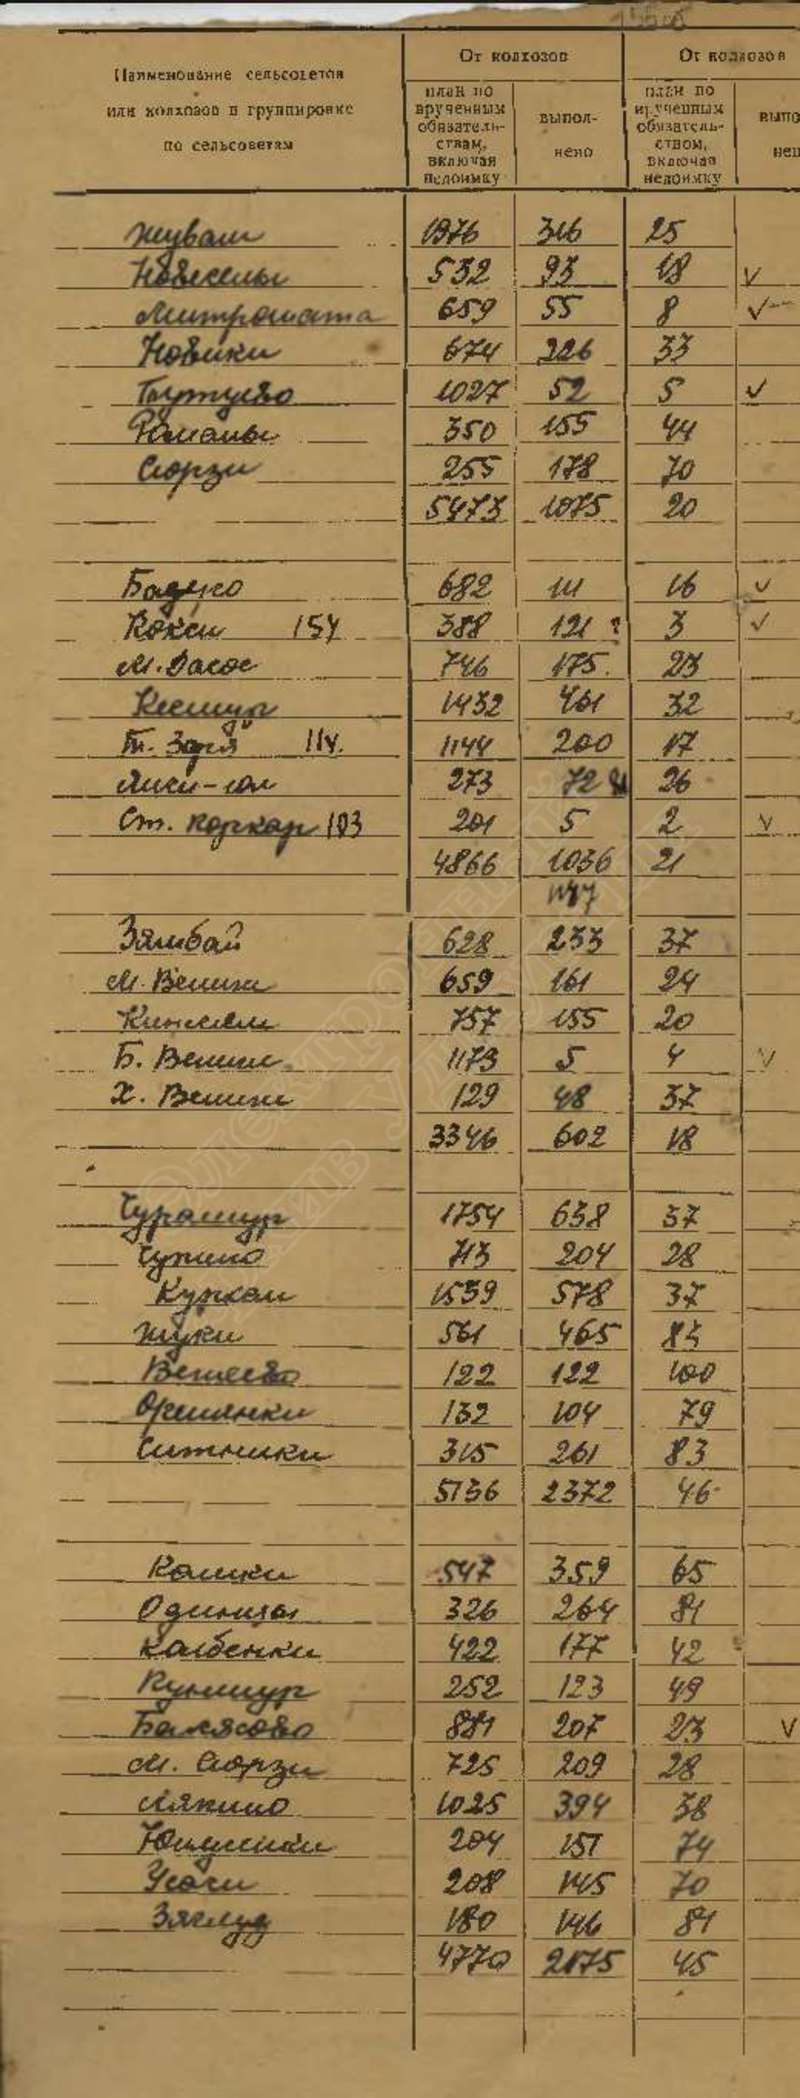 Наименование сельсоветов или колхозов в группировке по сельсоветам
От колхозов
От колхозов
план по врученным обязательствам, включая недоимку
выполнено
план по врученным обязательством, включая недоимку
выпо
нен
Жуваш 1976 316 25
Новоселы 532 93 18 V
Митрошата 659 55 8 V
Новики 674 226 33
Туртуево 1027 52 5 V
Романы 350 155 44
Сюрзи 255 178 70
5473 1075 20
Бадеро 682 111 16 V
Кокси 154 388 121 ? 3 V
М. Васос 746 175 23
Кесшур 1432 461 32
Т. Заря 114. 1144 200 17
Лиси-гол 273 72 26
Ст. Коркар 103 201 5 2 V
4866 1036 21
1147
Зямбай 628 233 37
М. Вениж 659 161 24
757 155 20
Б. Вениж 1173 5 4 V
Х. Вениж 129 48 37
3346 602 18
Чурашур 1754 638 37
Чупино 713 204 28
Кужкам 1539 578 37
Жуки 561 465 83
122 122 100
132 104 79
Ситники 315 261 83
5136 2372 46
Калики 547 359 65
Одинцы 326 264 81
Колбенки 422 177 42
Куншур 252 123 49
Балясово 881 207 23 V
М. Сюрзи 725 209 28
Ляпино 1025 394 38
204 151 74
Усачи 208 145 70
Зяглуд 180 146 81
4770 2175 45